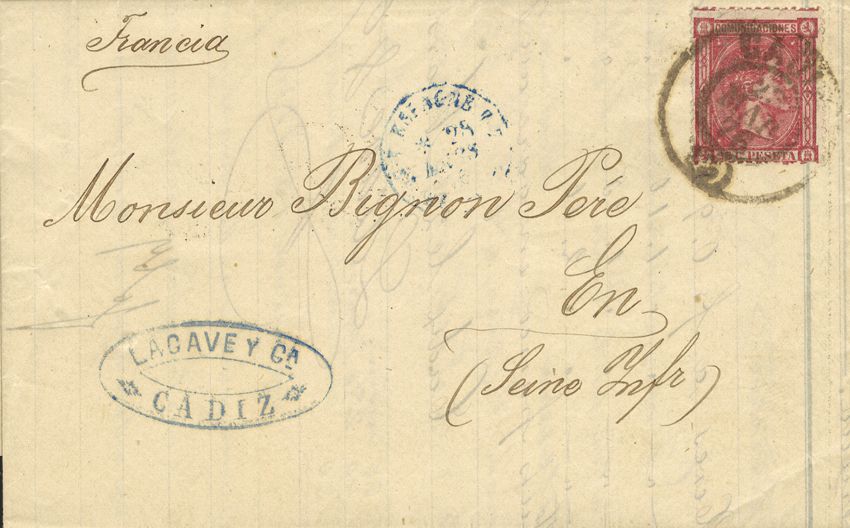 Francia
COMUNICACIONES
PESETA
ESPAGNE
28
MAR
Monsieur Bignon Père
En
(Seine Infr)
LACAVE Y CA
CADIZ